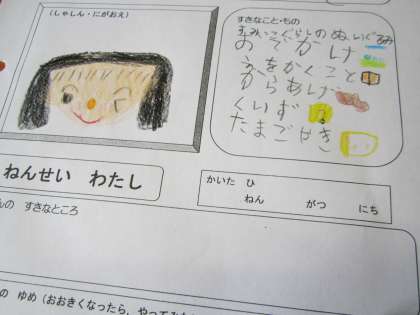 (しゃしん・にがおえ)
すきなこと・もの
すみっこぐらしのぬいぐるみ
おでかけ
えをかくこと
からあげ
くいず
たまごやき
ねんせい わたし
かいた ひ
ねん がつ にち
んの すきなところ
の ゆめ(おおきくなったら、やってみ